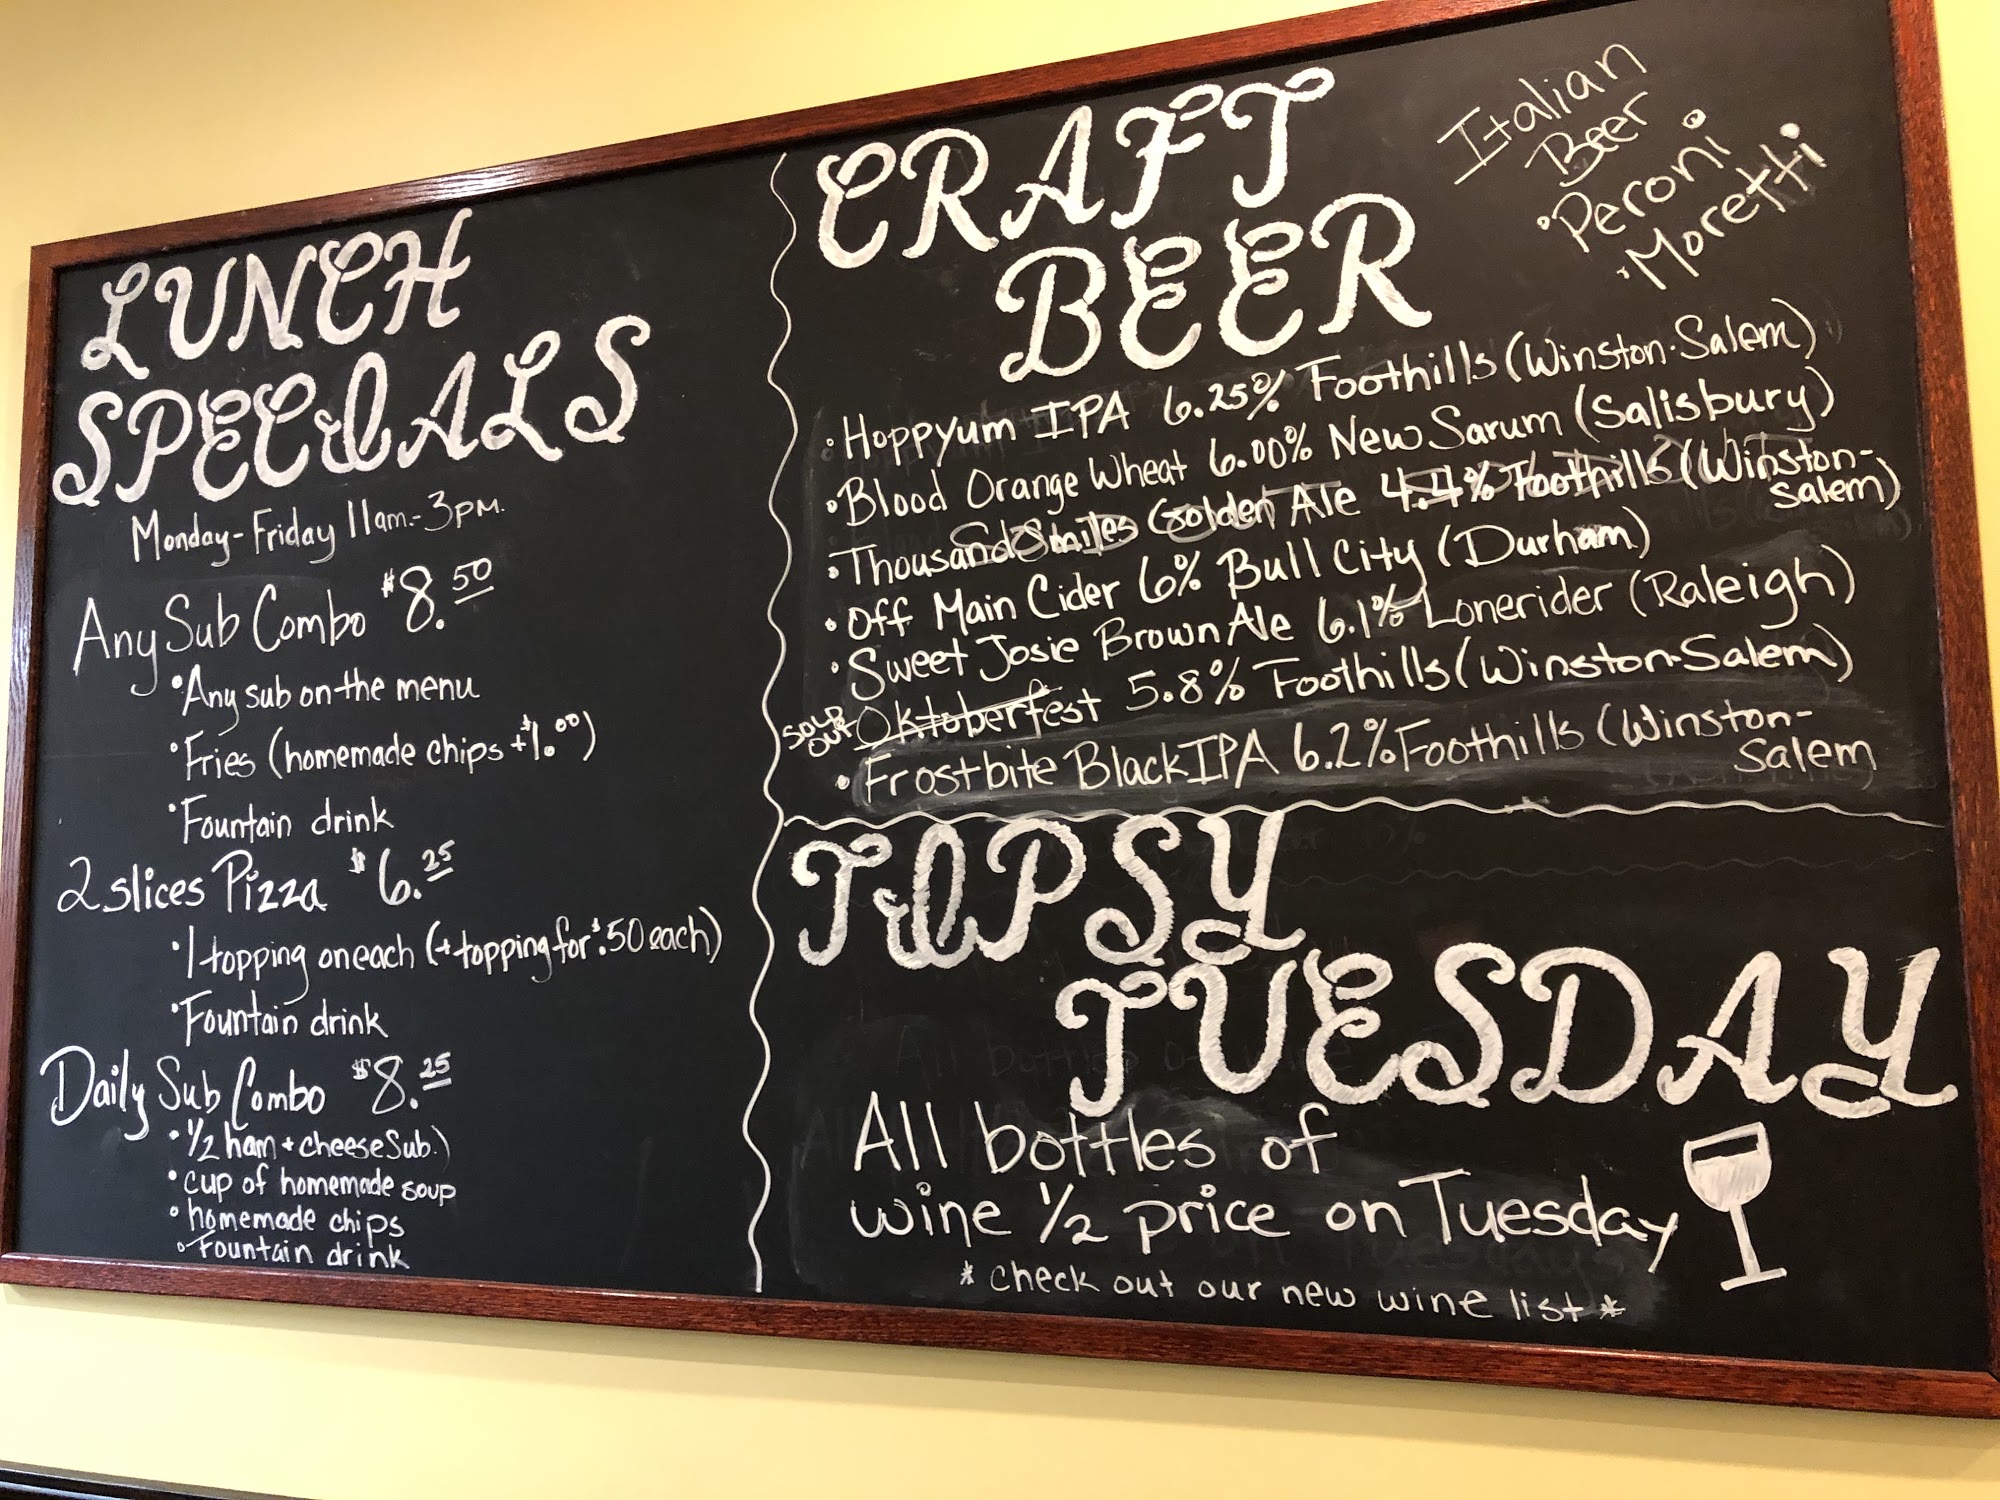 LUNCH
SPECIALS
Monday-Friday 11am.-3pm.
Any Sub Combo $8.50
•Any sub on the menu
•Fries (homemade chips +$1.00)
•Fountain drink
2 slices Pizza $6.25
•1 topping on each (+ topping for $.50 each)
•Fountain drink
Daily Sub Combo $8.25
•1/2 ham + cheese Sub.)
•cup of homemade soup
•homemade chips
•Fountain drink
CRAFT
BEER
Italian
Beer
•Peroni
•Moretti
•Hoppyum IPA 6.25% Foothills (Winston-Salem)
•Blood Orange Wheat 6.00% New Sarum (Salisbury)
•Thousand Smiles Golden Ale 4.4% Foothills (Winston-
Salem)
•Off Main Cider 6% Bull City (Durham)
•Sweet Josie Brown Ale 6.1% Lonerider (Raleigh)
SOLD
OUT
Oktoberfest 5.8% Foothills (Winston-Salem)
•Frostbite Black IPA 6.2% Foothills (Winston-
Salem
TIPSY
TUESDAY
All bottles of
wine 1/2 price on Tuesday
*check out our new wine list*